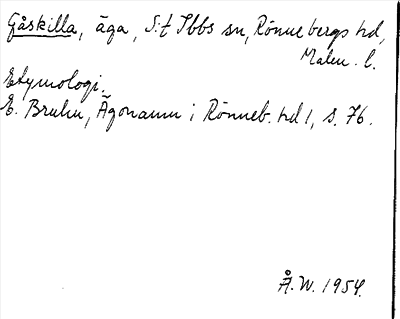 Gåskilla, äga, S:t Ibbs sn, Rönnebergs hd,
Malm. l.
Etymologi.
E. Bruhn, Ägonamn i Rönneb. hd 1, s. 76.
Å. W. 1954.